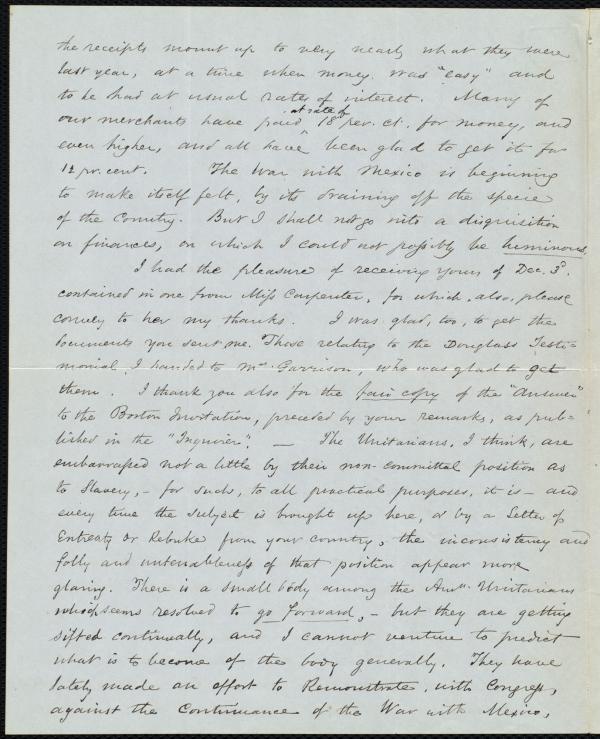 the receipts mount up to very nearly what they were
last year, at a time when money was "easy" and
to be had at usual rates of interest. Many of
our merchants have paid ^at rate of 18 per. ct. for money, and
even higher, and all have been glad to get it for
12 pr. cent. The War with Mexico is beginning
to make itself felt, by its draining off the specie
of the Country. But I shall not go into a disquisition
on finances, on which I could not possibly be luminous.
I had the pleasure of receiving yours of Dec. 3d.
contained in one from Miss Carpenter, for which, also, please
convey to her my thanks. I was glad, too, to get the
documents you sent me. Those relating to the Douglass Testi-
monial, I handed to Mr. Garrison, who was glad to get
them. I thank you also for the fair copy of the "Answer"
to the Boston Invitation, preceded by your remarks, as pub-
lished in the "Inquirer". — The Unitarians, I think, are
embarrassed not a little by their non-committal position as
to Slavery, - for such, to all practical purposes, it is - and
every time the subject is brought up here, or by a Letter of
Entreaty or Rebuke from your country, the inconsistency and
folly and untenableness of that position appear more
glaring. There is a small body among the Amn. Unitarians
which seems resolved to go forward, - but they are getting
sifted continually, and I cannot venture to predict
what is to become of the body generally. They have
lately made an effort to Remonstrate, with Congress,
against the Continuance of the War with Mexico,